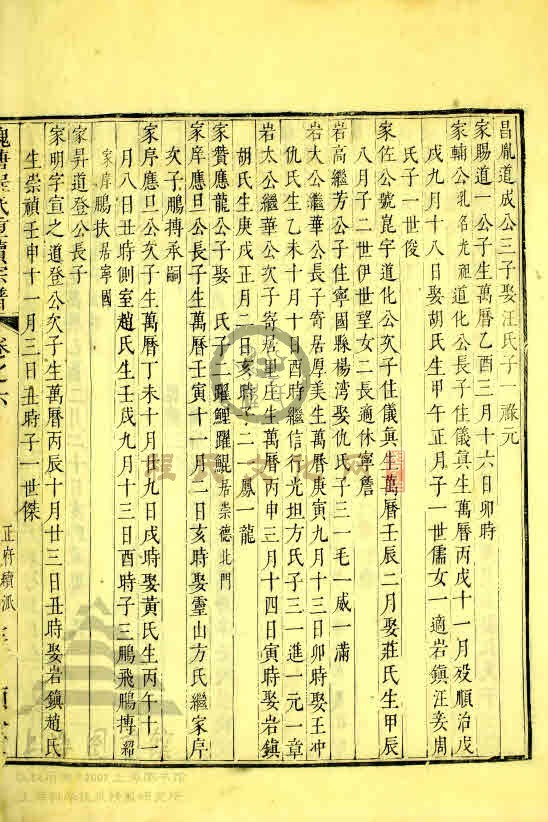 昌胤道成公三子娶汪氏子一祿元
家賜道一公子生萬曆乙酉三月十六日卯時
家輔公乳名光祖道化公長子住儀眞生萬曆丙戌十一月歿順治戊
戌九月十八日娶胡氏生甲午正月子一世儒女一適岩鎭汪妾周
氏子一世俊
家佐公號崑宇道化公次子住儀眞生萬曆壬辰二月娶莊氏生甲辰
八月子二世伊世望女二長適休寧詹
岩高繼芳公子住寧國縣楊湾娶仇氏子三一毛一威一滿
岩大公繼華公長子寄居厚美生萬曆庚寅九月十三日卯時娶王冲
仇氏生乙未十月十日酉時繼信行光坦方氏子三一進一元一章
岩太公繼華公次子寄居里庄生萬曆丙申三月十四日寅時娶岩鎭
胡氏生庚戌正月二日亥時子二一鳳一龍
家贊應龍公子娶 氏子二躍鯉躍鯤居崇德北門
家庠應旦公長子生萬曆壬寅十一月二日亥時娶靈山方氏繼家序
次子鵬摶承嗣
家序應旦公次子生萬曆丁未十月十九日戌時娶黃氏生丙午十一
月八日丑時側室趙氏生壬戌九月十三日酉時子三鵬飛鵬摶紹
家庠鵬扶居寧國
家昇道登公長子
家明字宣之道登公次子生萬曆丙辰十月廿三日丑時娶岩鎭趙氏
生崇禎壬申十一月三日丑時子一世傑
氏重續宗譜 卷之六 正府續派